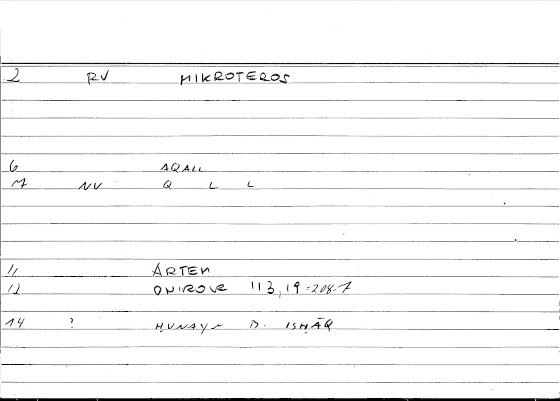 2 RV MIKROTEROS
6 AQALL
M NV Q L L
11 ARTEM
12 ONIROVE 113,19=208.7
14 ? ḤUNAYN B. ISḤĀQ